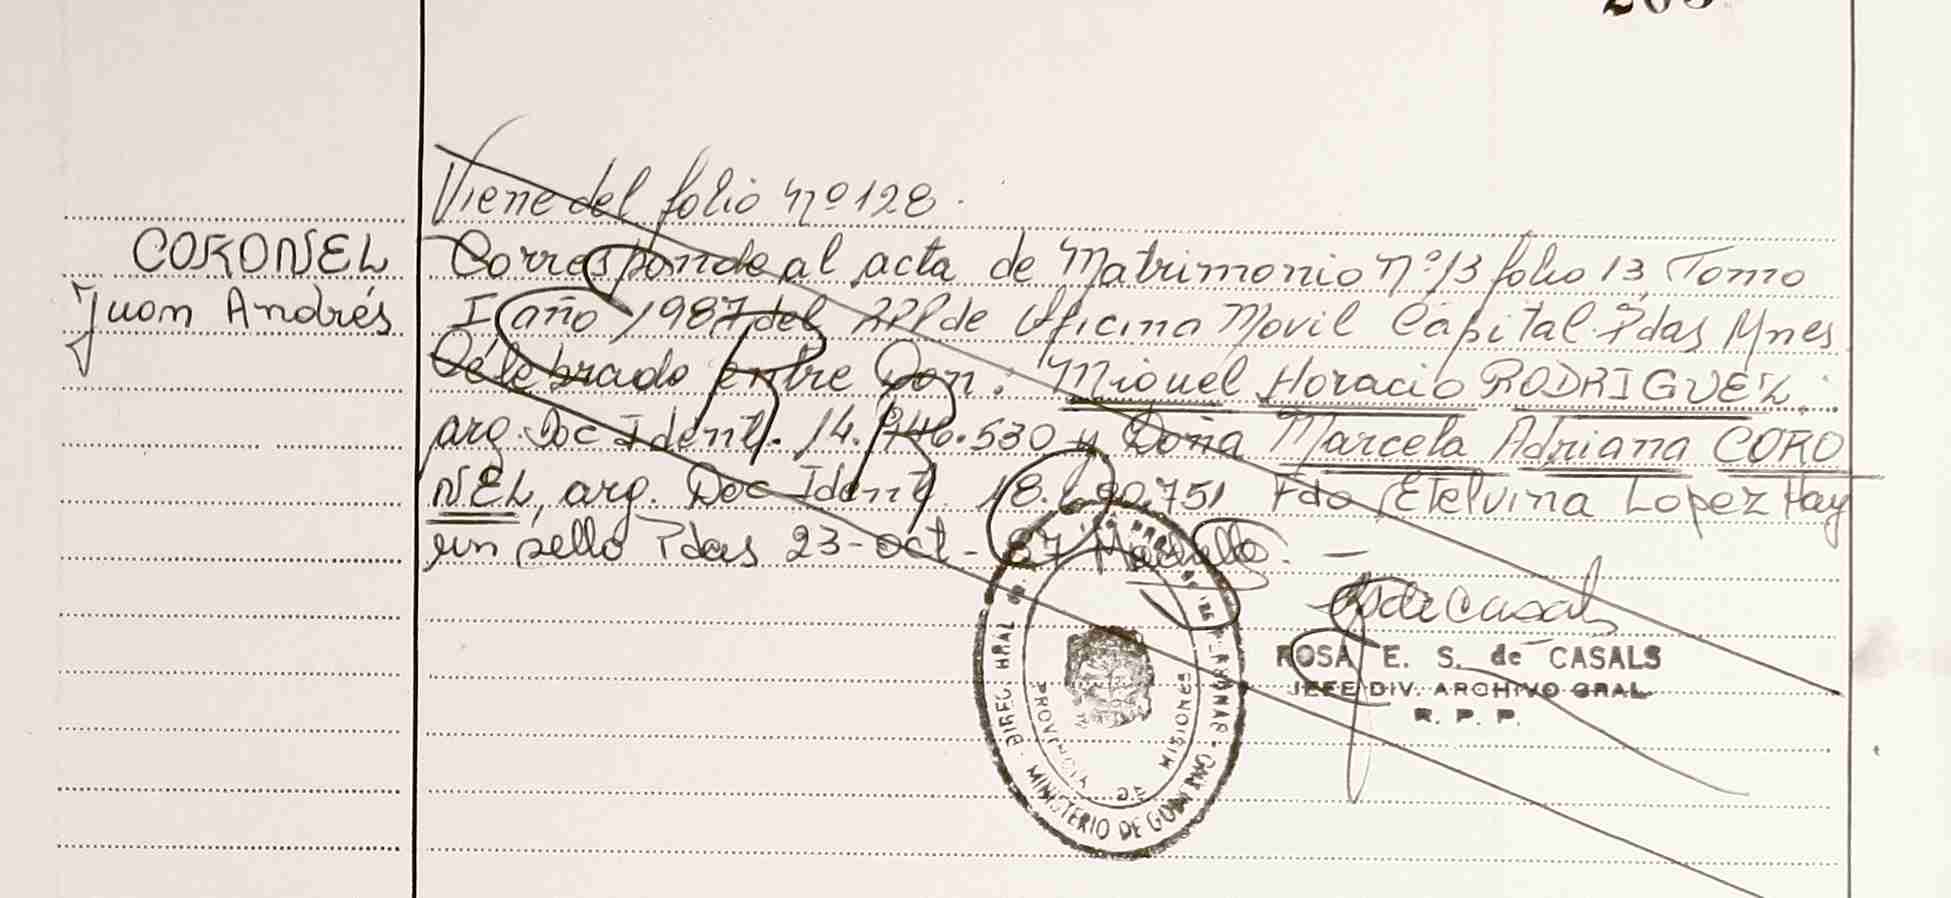 CORONEL
Juan Andrés
Viene del folio nº 128.
Corresponde al acta de Matrimonio nº 13 folio 13 Tomo
I año 1987 del RPP de Oficina Movil Capital. Pdas Mnes
Celebrado entre Don: Miguel Horacio RODRIGUEZ.
arg. Doc Ident. 14.946.530 y Doña Marcela Adriana CORO
NEL, arg. Doc Ident. 18. .751 Fdo Etelvina Lopez Hay
un sello Pdas 23-oct-87
ROSA E. S. de CASALS
JEFE DIV. ARCHIVO GRAL.
R. P. P.
MINISTERIO DE
PROVINCIA DE MISIONES